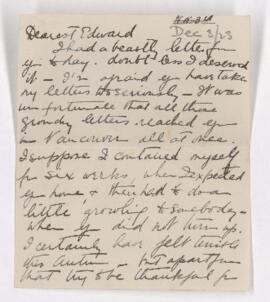 Dearest Edward
Dec 3/23
I had a beastly letter from
you to day. doubtless I deserved
it – I'm afraid you have taken
my letters too seriously – It was
unfortunate that all those
groudy letters reached you
in Vancouver all at once.
I suppose I contained myself
for six weeks, when I expected
you home & then had to do a
little growling to somebody –
when you did not turn up.
I certainly have felt
this Autumn – but apart from
that try to be thankful for